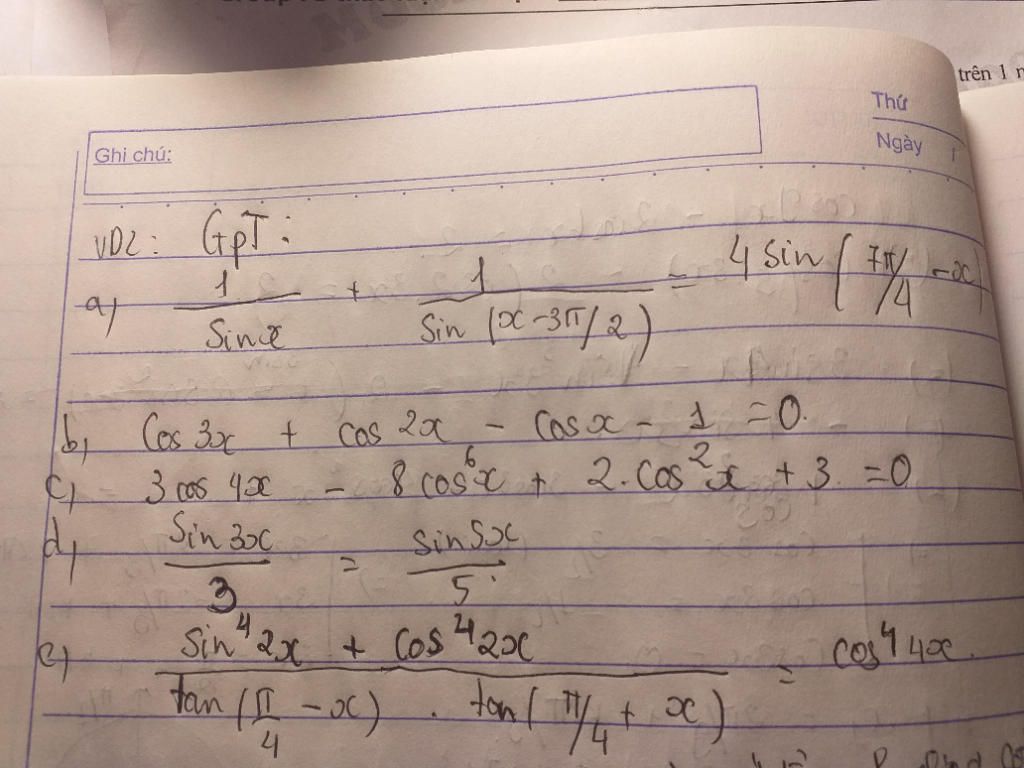 trên 1
Thứ
Ghi chú:
Ngày
VD2: GpT:
a, 1/Sinx + 1/Sin(x - 3π/2) = 4 Sin(7π/4 - x)
b, Cos 3x + cos 2x - cosx - 1 = 0.
c, 3 cos 4x - 8 cos⁶x + 2.cos²x + 3 = 0
d, Sin 3x/3 = sin 5x/5
e, (sin⁴2x + cos⁴2x)/(tan(π/4 - x) . tan(π/4 + x)) = cos⁴4x.